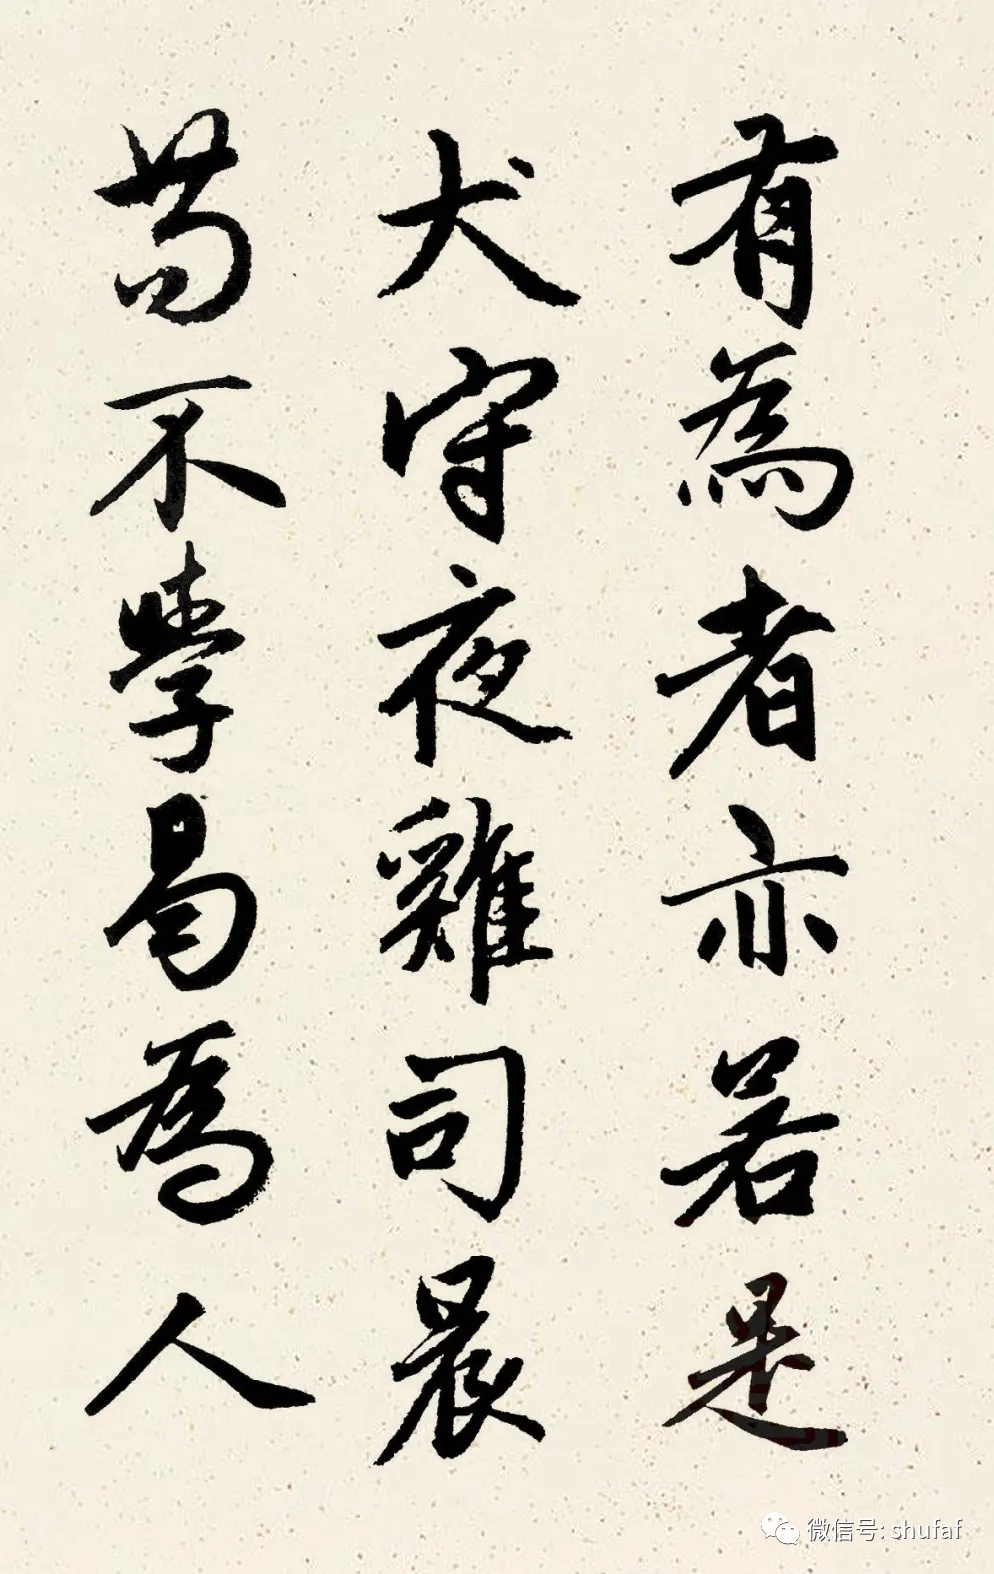 有為者亦若是
犬守夜雞司晨
苟不學曷為人
微信号: shufaf